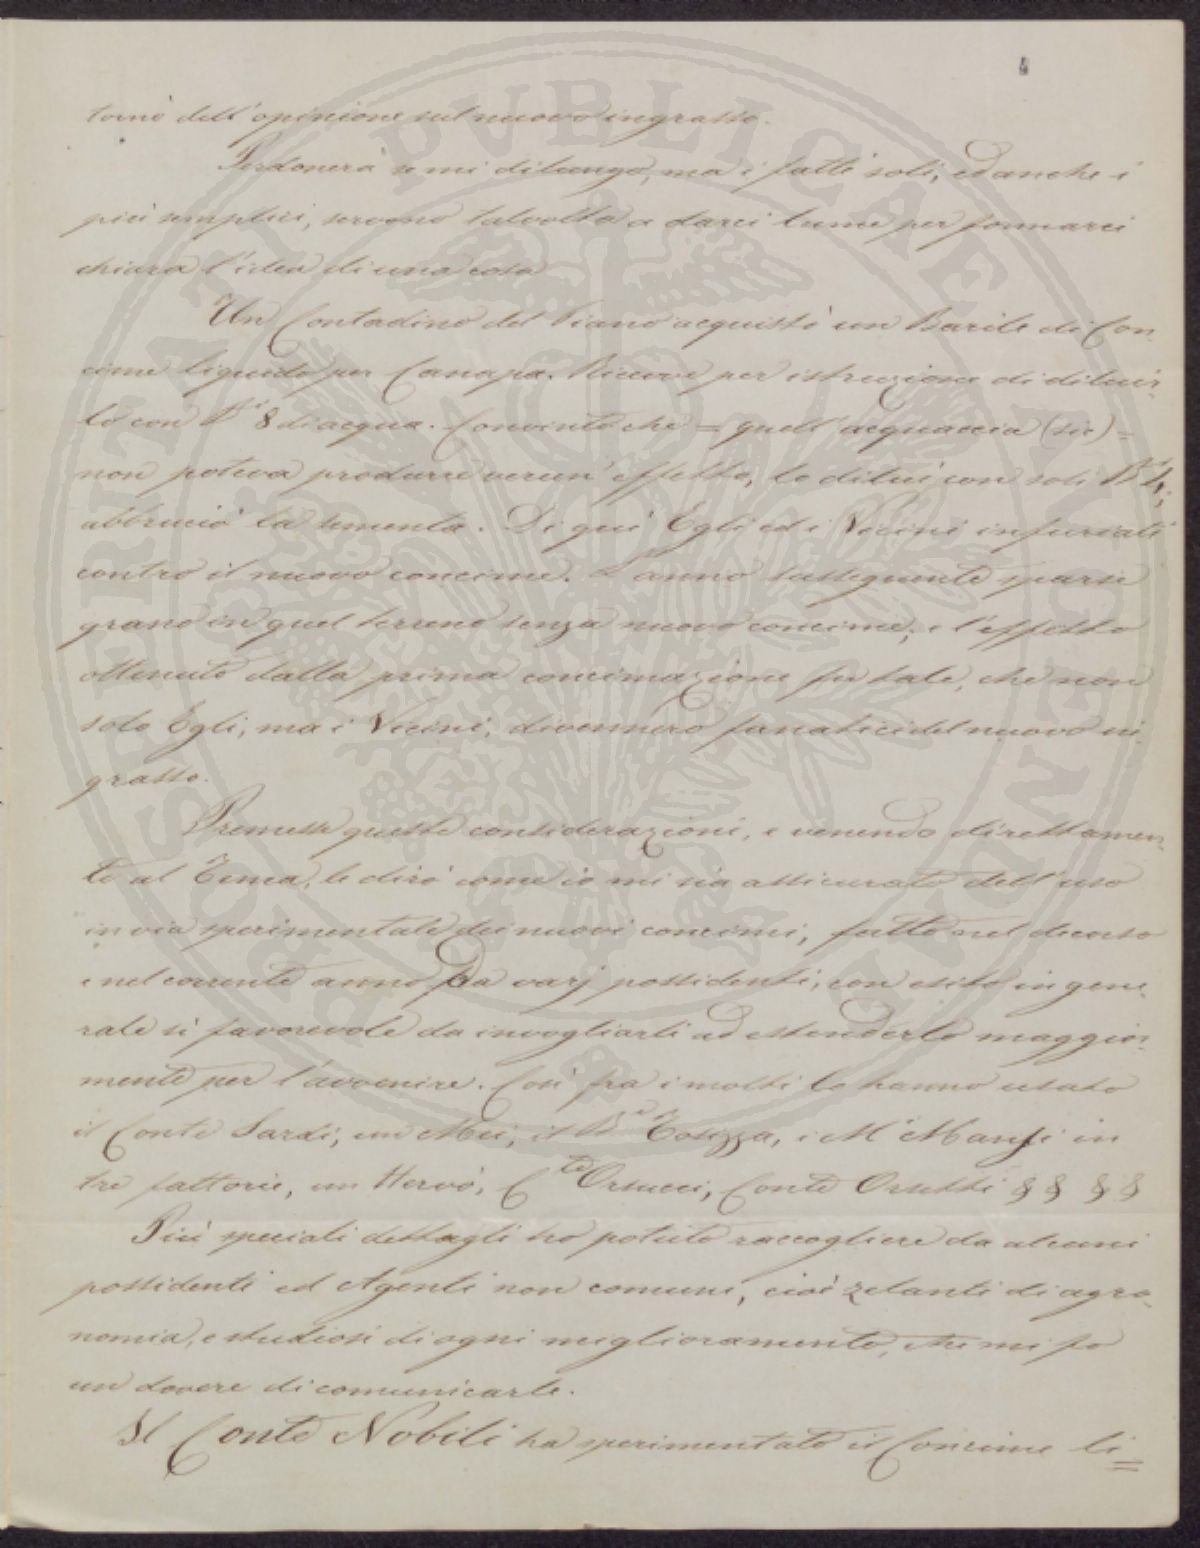 4
torno dell'opinione sul nuovo ingrasso.
Perdonerà se mi dilungo, ma i fatti soli, ed anche i
più semplici, servono talvolta a darci lume per formarci
chiara l'idea di una cosa
Un Contadino del Piano acquistò un Barile di Con-
cime liquido per Canapa. Riceve per istruzione di diluir-
lo con Bi 8 di acqua. Convinto che = quell'acquaccia (sic) =
non poteva produrre verun' effetto, lo diluì con soli Bi 4;
abbruciò la sementa. Di qui Egli ed i Vicini infuriati
contro il nuovo concime. L'anno susseguente sparse
grano in quel terreno senza nuovo concime; e l'effetto
ottenuto dalla prima concimazione fu tale, che non
solo Egli, ma i Vicini, divennero fanatici del nuovo in-
grasso.
Premesse queste considerazioni, e venendo direttamen-
te al Tema, le dirò come io mi sia assicurato dell'uso
in via sperimentale dei nuovi concimi, fatto nel decorso
e nel corrente anno da varj possidenti, con esito in gene-
rale sì favorevole da invogliarli ad estenderlo maggior-
mente per l'avvenire. Così fra i molti lo hanno usato
il Conte Sardi, un Mei, il Be Tosizza, i Mi Mansi in
tre fattorie, un Hervò, Cte Orsucci, Conte Orsetti § § § §
Più speciali dettagli ho potuto raccogliere da alcuni
possidenti ed Agenti non comuni, cioè zelanti di agro-
nomia, e studiosi di ogni miglioramento, che mi fo
un dovere di comunicarle.
Il Conte Nobili ha sperimentato il Concime li=
PROSPERITATI PUBLICAE AUGENDAE